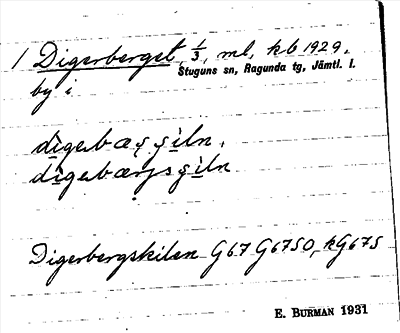 1 Digerberget, 1/3, ml, kb 1929.
Stuguns sn, Ragunda tg, Jämtl. l.
by i
digerbæʂʂiln,
digerbærjsʂiln
Digerbergskilen G67 G67SO, kG67S
E. BURMAN 1931